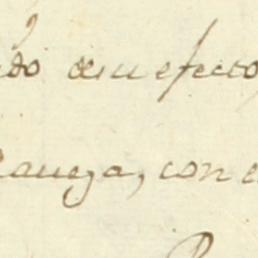 do de su efecto,
aueza, con e